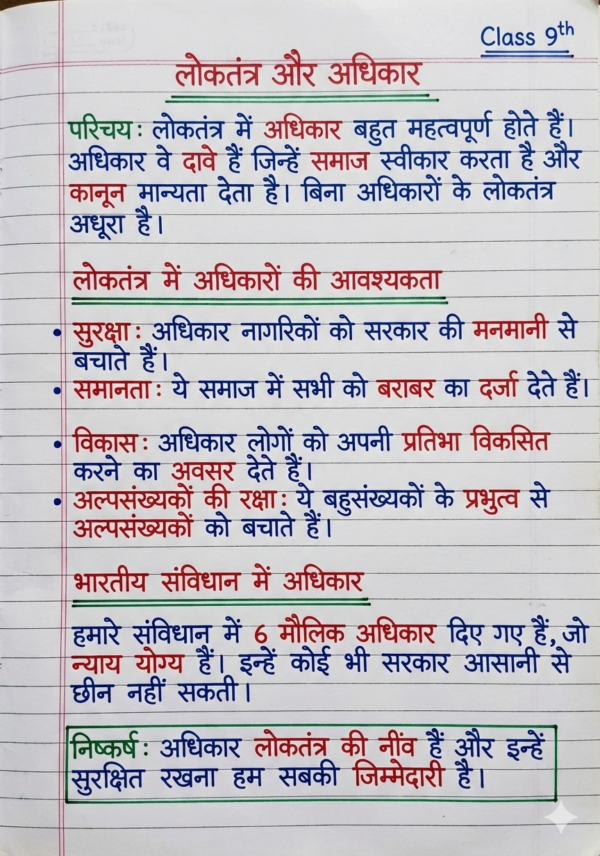 Class 9th
लोकतंत्र और अधिकार
परिचय : लोकतंत्र में अधिकार बहुत महत्वपूर्ण होते हैं।
अधिकार वे दावे हैं जिन्हें समाज स्वीकार करता है और
कानून मान्यता देता है। बिना अधिकारों के लोकतंत्र
अधूरा है।
लोकतंत्र में अधिकारों की आवश्यकता
• सुरक्षा : अधिकार नागरिकों को सरकार की मनमानी से
बचाते हैं।
• समानता : ये समाज में सभी को बराबर का दर्जा देते हैं।
• विकास : अधिकार लोगों को अपनी प्रतिभा विकसित
करने का अवसर देते हैं।
• अल्पसंख्यकों की रक्षा : ये बहुसंख्यकों के प्रभुत्व से
अल्पसंख्यकों को बचाते हैं।
भारतीय संविधान में अधिकार
हमारे संविधान में 6 मौलिक अधिकार दिए गए हैं, जो
न्याय योग्य हैं। इन्हें कोई भी सरकार आसानी से
छीन नहीं सकती।
निष्कर्ष : अधिकार लोकतंत्र की नींव हैं और इन्हें
सुरक्षित रखना हम सबकी जिम्मेदारी है।